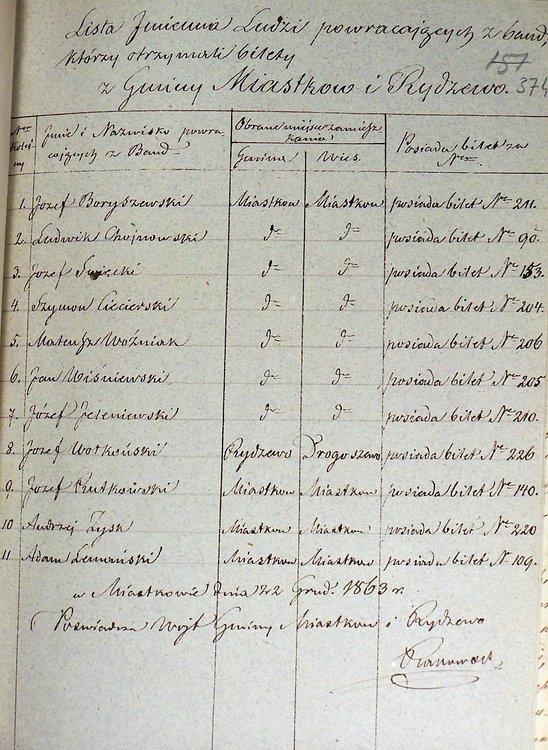 Lista Jmienna Ludzi powracających z band,
którzy otrzymali bilety
z Gminy Miastkow i Rydzewo.
157
374
Imie i Nazwisko powra
cających z Band
Obrane miejsce zamiesz
kania
Gmina Wies.
Posiada bilet za
Nrem
1. Jozef Boryszewski Miastkow Miastkow posiada bilet Nr 211.
2. Ludwik Chojnowski do do posiada bilet Nr 90.
3. Jozef do do posiada bilet Nr 153.
4. Szymon Ciecierski do do posiada bilet Nr 204.
5. Mateusz Woźniak do do posiada bilet Nr 206
6. Jan Wiśniewski do do posiada bilet Nr 205
7. Józef Jeleniewski do do posiada bilet Nr 210.
8. Jozef Wołkoński Rydzewo Drogoszewo posiada bilet Nr 226
9. Jozef Rutkowski Miastkow Miastkow posiada bilet Nr 140.
10 Andrzej Zysk Miastkow Miastkow posiada bilet Nr 220
11 Adam Lemański Miastkow Miastkow posiada bilet N 109.
w Miastkowie dnia Grud. 1863 r.
Poswiadcza Wojt Gminy Miastkow i Rydzewo